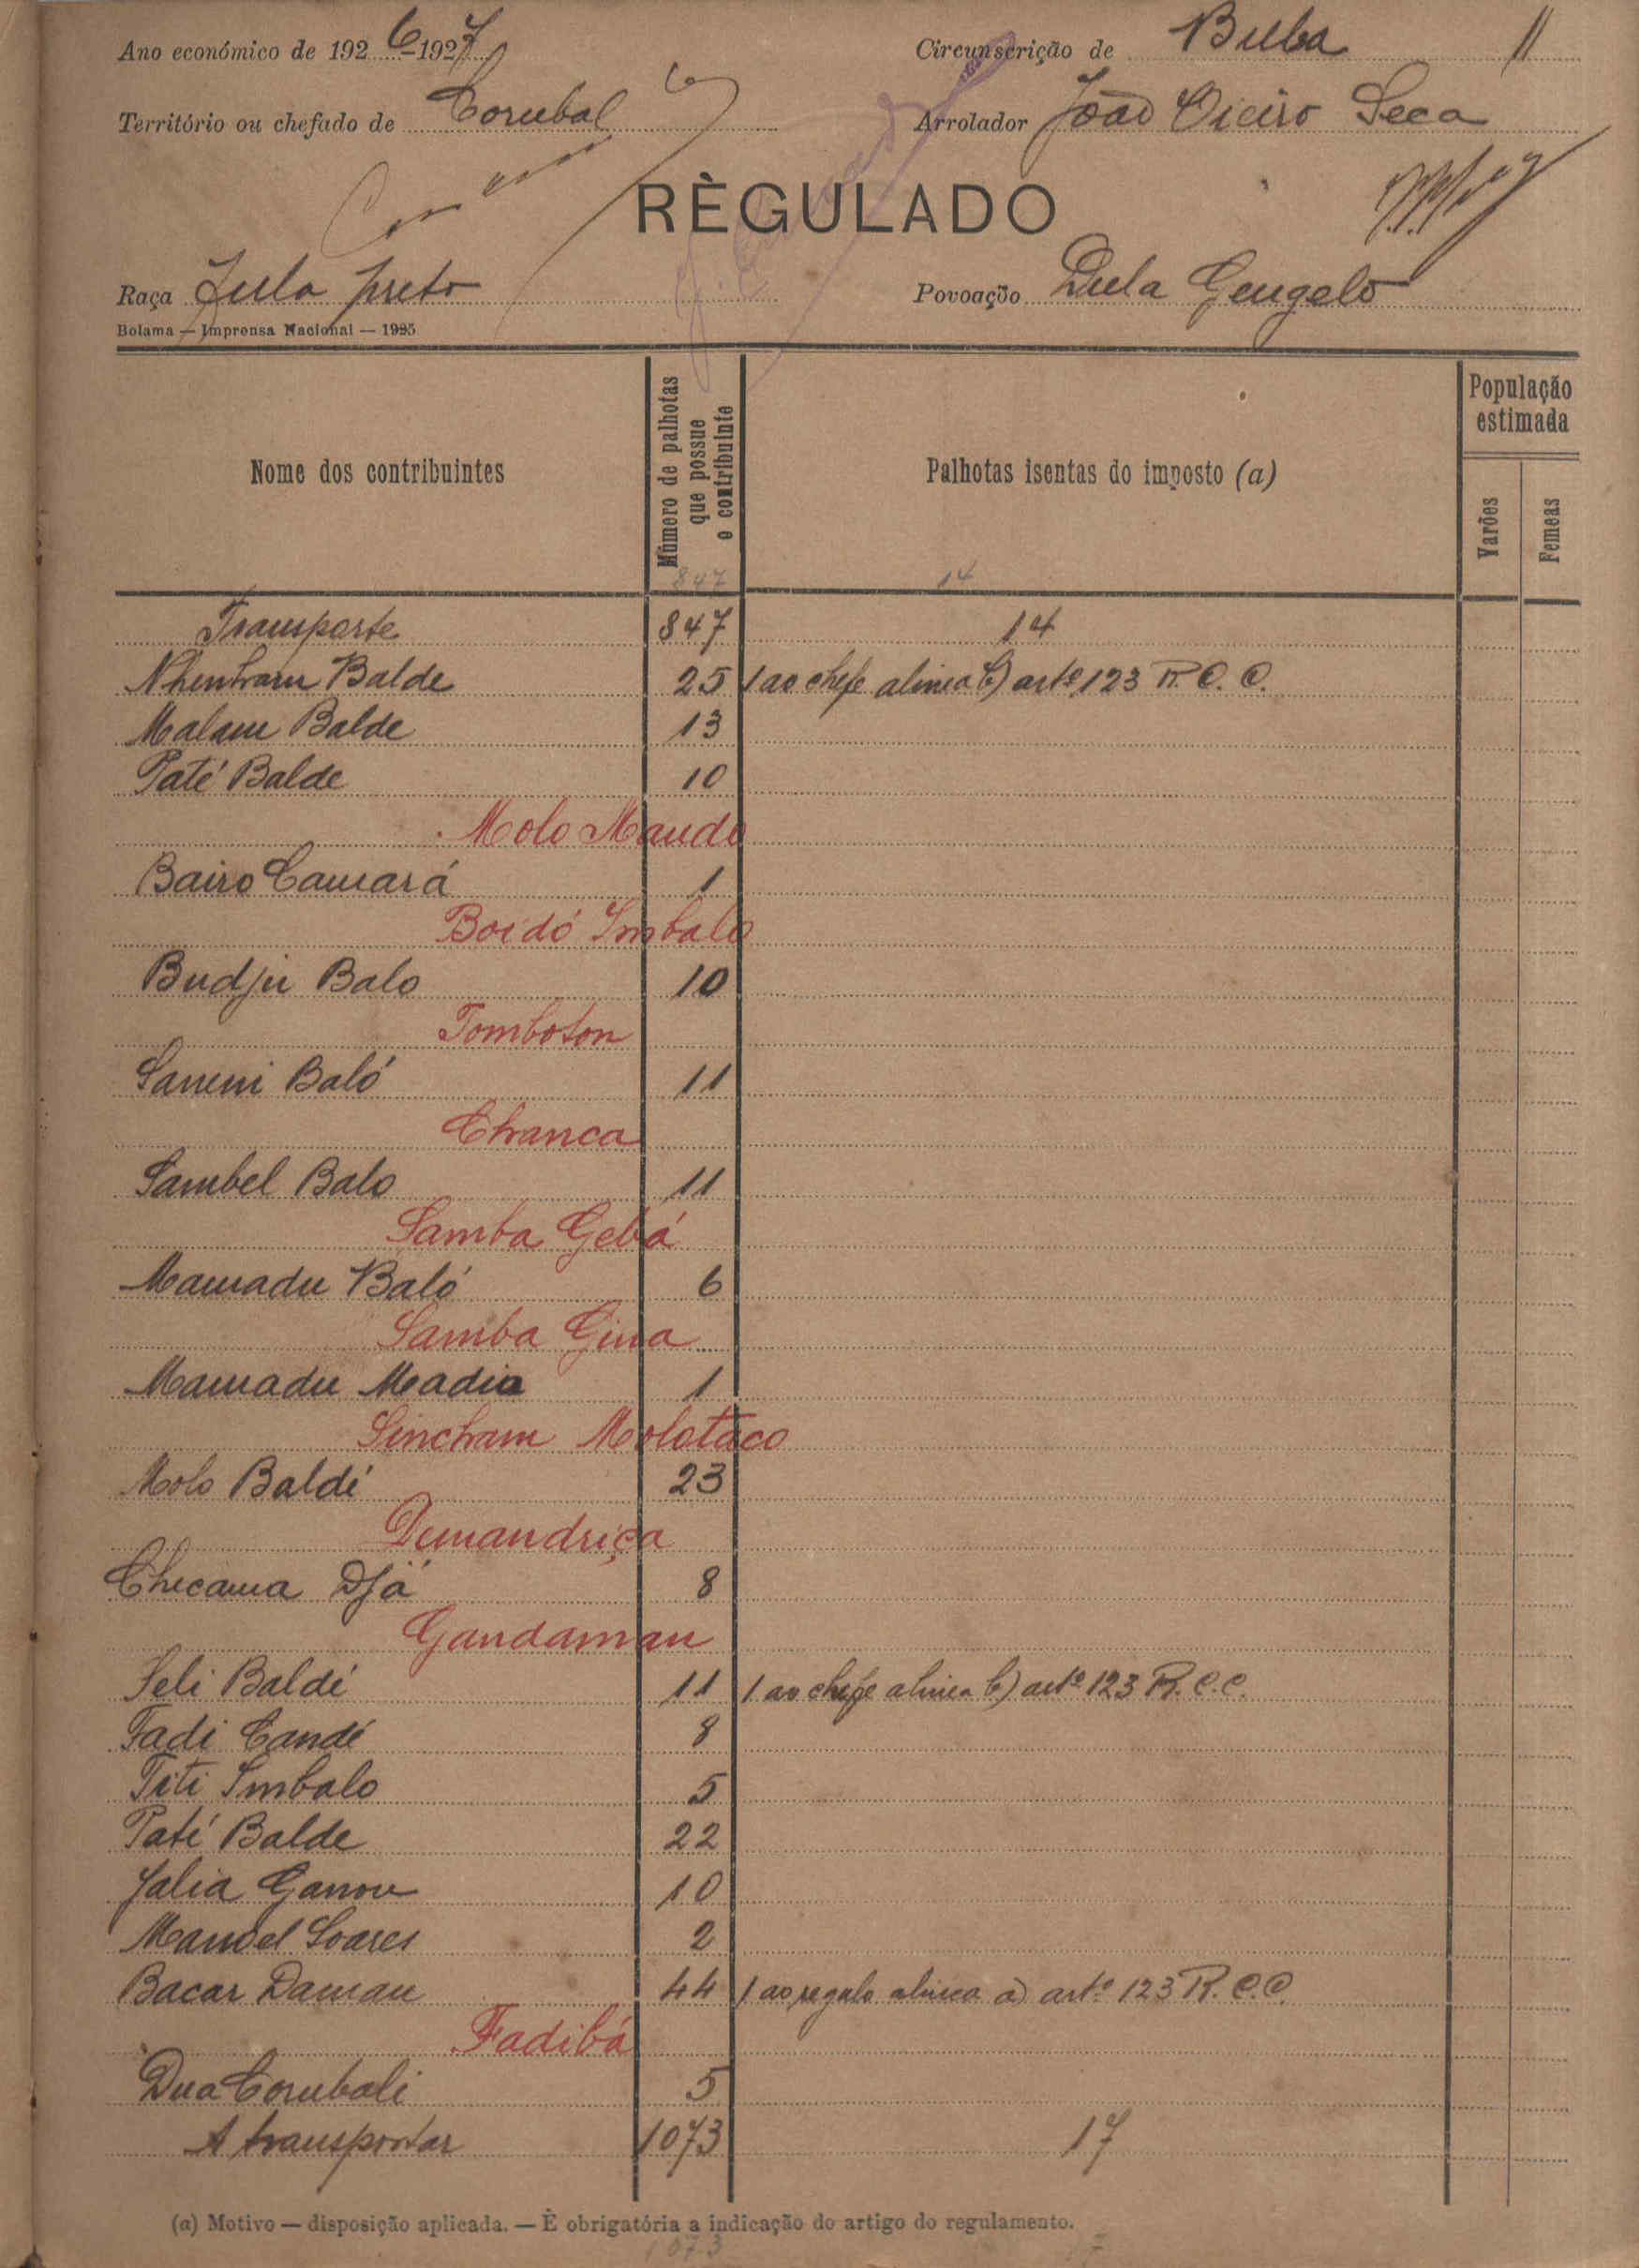 Ano económico de 1926-1927 Circunscrição de Buba 11
Território ou chefado de Corubal Arrolador João Vieira Seca
RÈGULADO
Raça Fula preto Povoação Dula Gengelo
Bolama — Imprensa Nacional — 1925
Nome dos contribuintes Número de palhotas que possue o contribuinte Palhotas isentas do imposto (a) População estimada
Varões Femeas
847 14
Transporte 847 14
Balde 25 1 ao chefe alinea b) artº 123 R. C. C.
Malam Balde 13
Paté Balde 10
Molo Maudo
Bairo Camará 1
Boidó Imbalo
Budju Balo 10
Tomboton
Saneni Baló 11
Chanca
Sambel Balo 11
Samba Gebá
Mamadu Baló 6
Samba Gina
Mamadu Meadia 1
Sincham Molotaco
Molo Baldé 23
Demandriça
Checama Djá 8
Gandaman
Seli Baldé 11 1 ao chefe alinea b) artº 123 R. C. C.
Fadi Candé 8
Titi Imbalo 5
Paté Balde 22
Jalia Ganou 10
Manoel Soares 2
Bacar Daman 44 1 ao regulo alinea a) artº 123 R. C. C.
Fadibá
Dua Corubali 5
A transportar 1073 17
(a) Motivo — disposição aplicada. — È obrigatória a indicação do artigo do regulamento.
1073 17